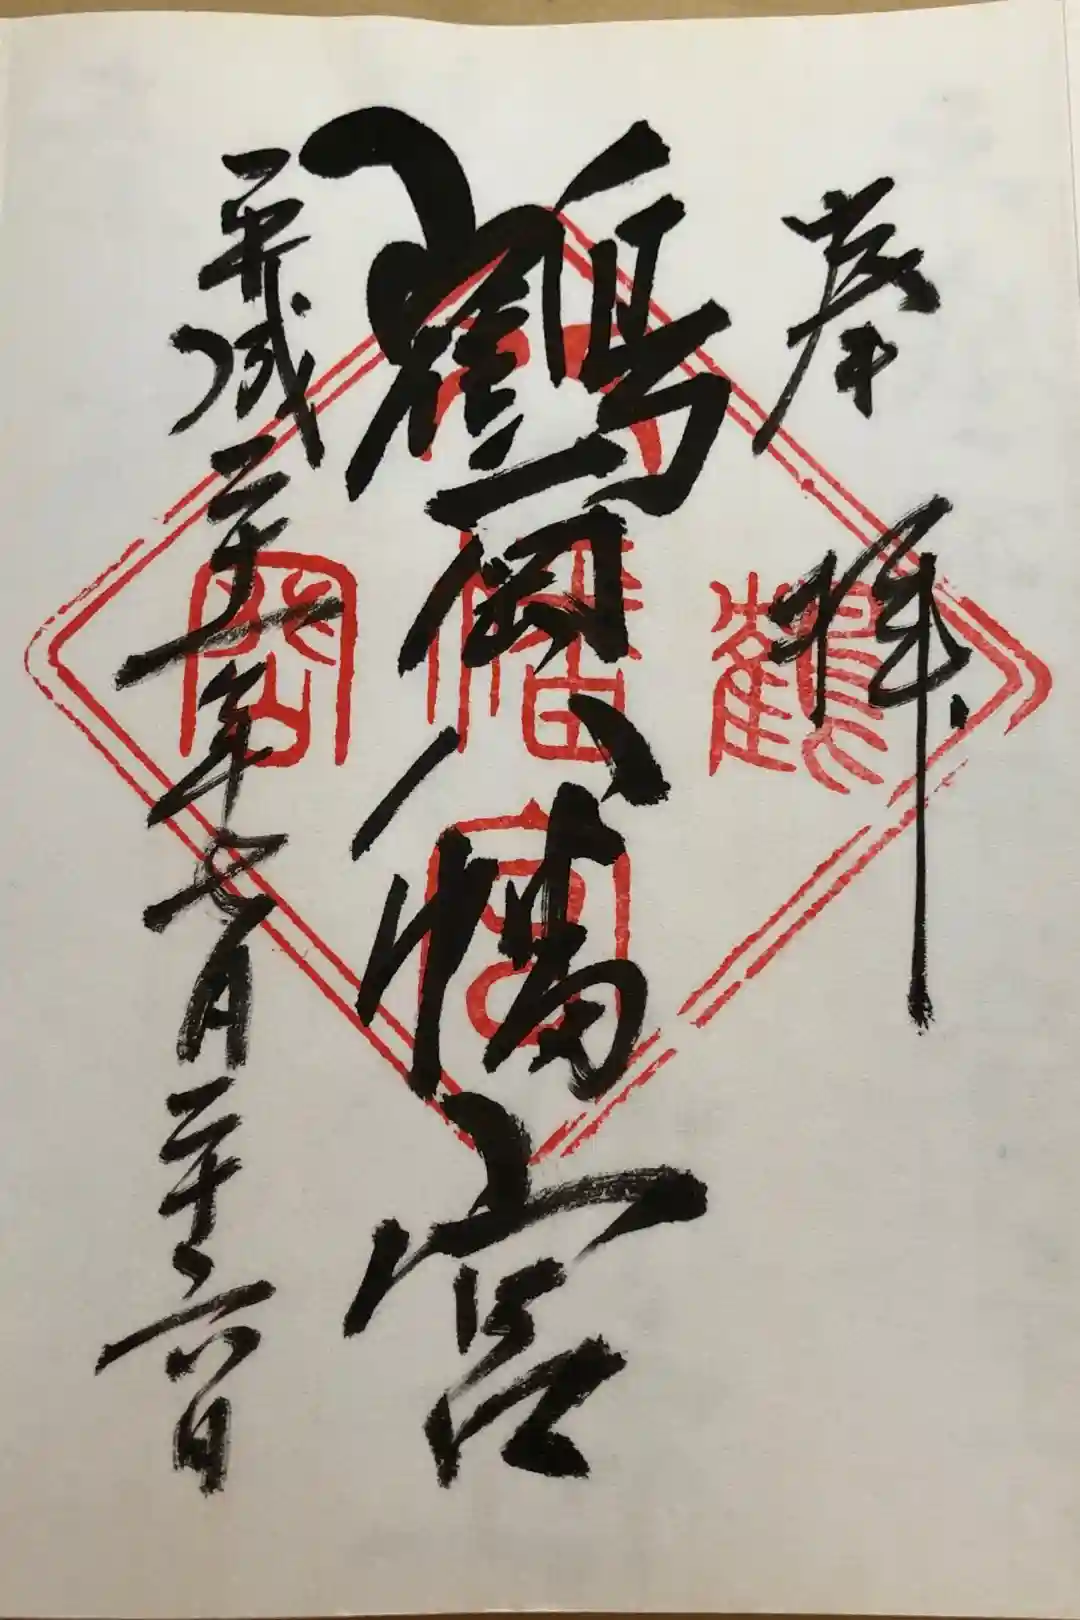 奉拝
鶴岡八幡宮
平成二十一年七月二十六日
鶴
八幡宮
岡